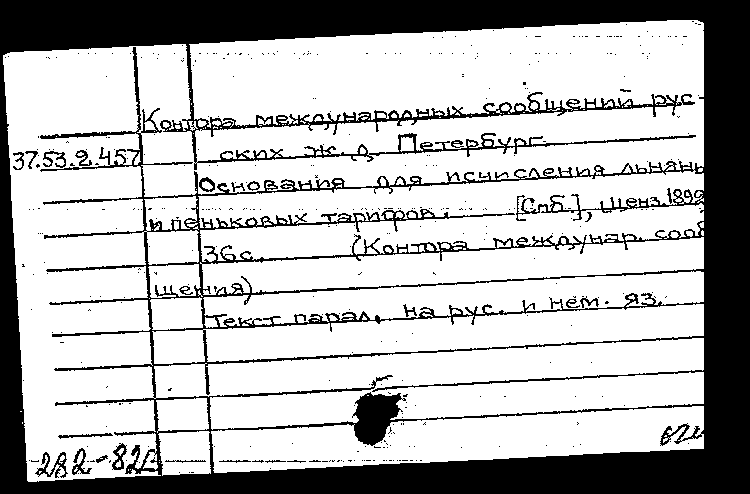 Контора международных сообщений рус-
37.53.2.457 ских ж. д. Петербург.
Основания для исчисления льнян
и пеньковых тарифов. [Спб.], ценз. 1892
36с. (Контора междунар. сооб
щения).
Текст парал. на рус. и нем. яз.
282-82